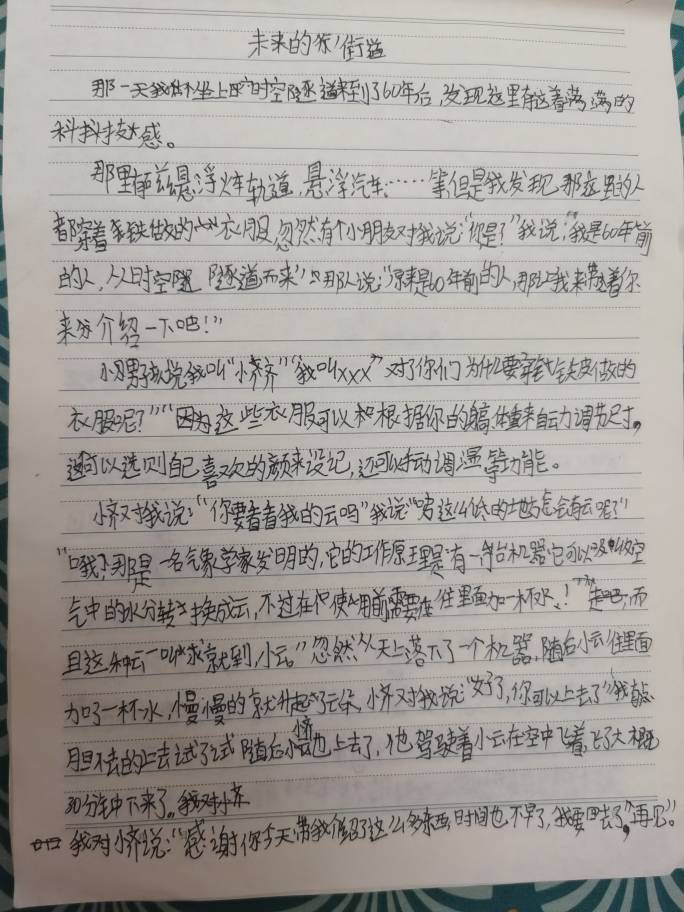 未来的街道
那一天我坐上时空隧道来到了60年后,发现这里有这着满满的
科技感。
那里有悬浮火车轨道,悬浮汽车……等但是我发现那这里的人
都穿着铁做的衣服,忽然有个小朋友对我说:“你是?”我说:“我是60年前
的人,从时空隧道而来”那人说:“原来是60年前的人,那让我来带着你
来介绍一下吧!”
小男孩说我叫“小济”“我叫xxx”对了你们为什么要穿铁皮做的
衣服呢?”“因为这些衣服可以和根据你的体重来自动调节尺寸,
还可以选则自己喜欢的颜来设记,还可以手动调温等功能。
小济对我说:“你要看看我的云吗”我说“啥这么低的地方怎么会有云呢?”
“哦?那是一名气象学家发明的,它的工作原理是有一台机器它可以吸收空
气中的水分转换成云,不过在使用前需要在往里面加一杯水!”走吧,而
且这种云一叫就到,小云。”忽然从天上落下了一个机器,随后小云往里面
加了一杯水,慢慢的就升起了云朵,小济对我说:“好了,你可以上去了”我有点
胆怯的上去试了试随后小济也上去了,他驾驶着小云在空中飞着,飞了大概
30分钟下来了。我对小
我对小济说:“感谢你今天带我介绍了这么多东西,时间也不早了,我要回去了,“再见”。